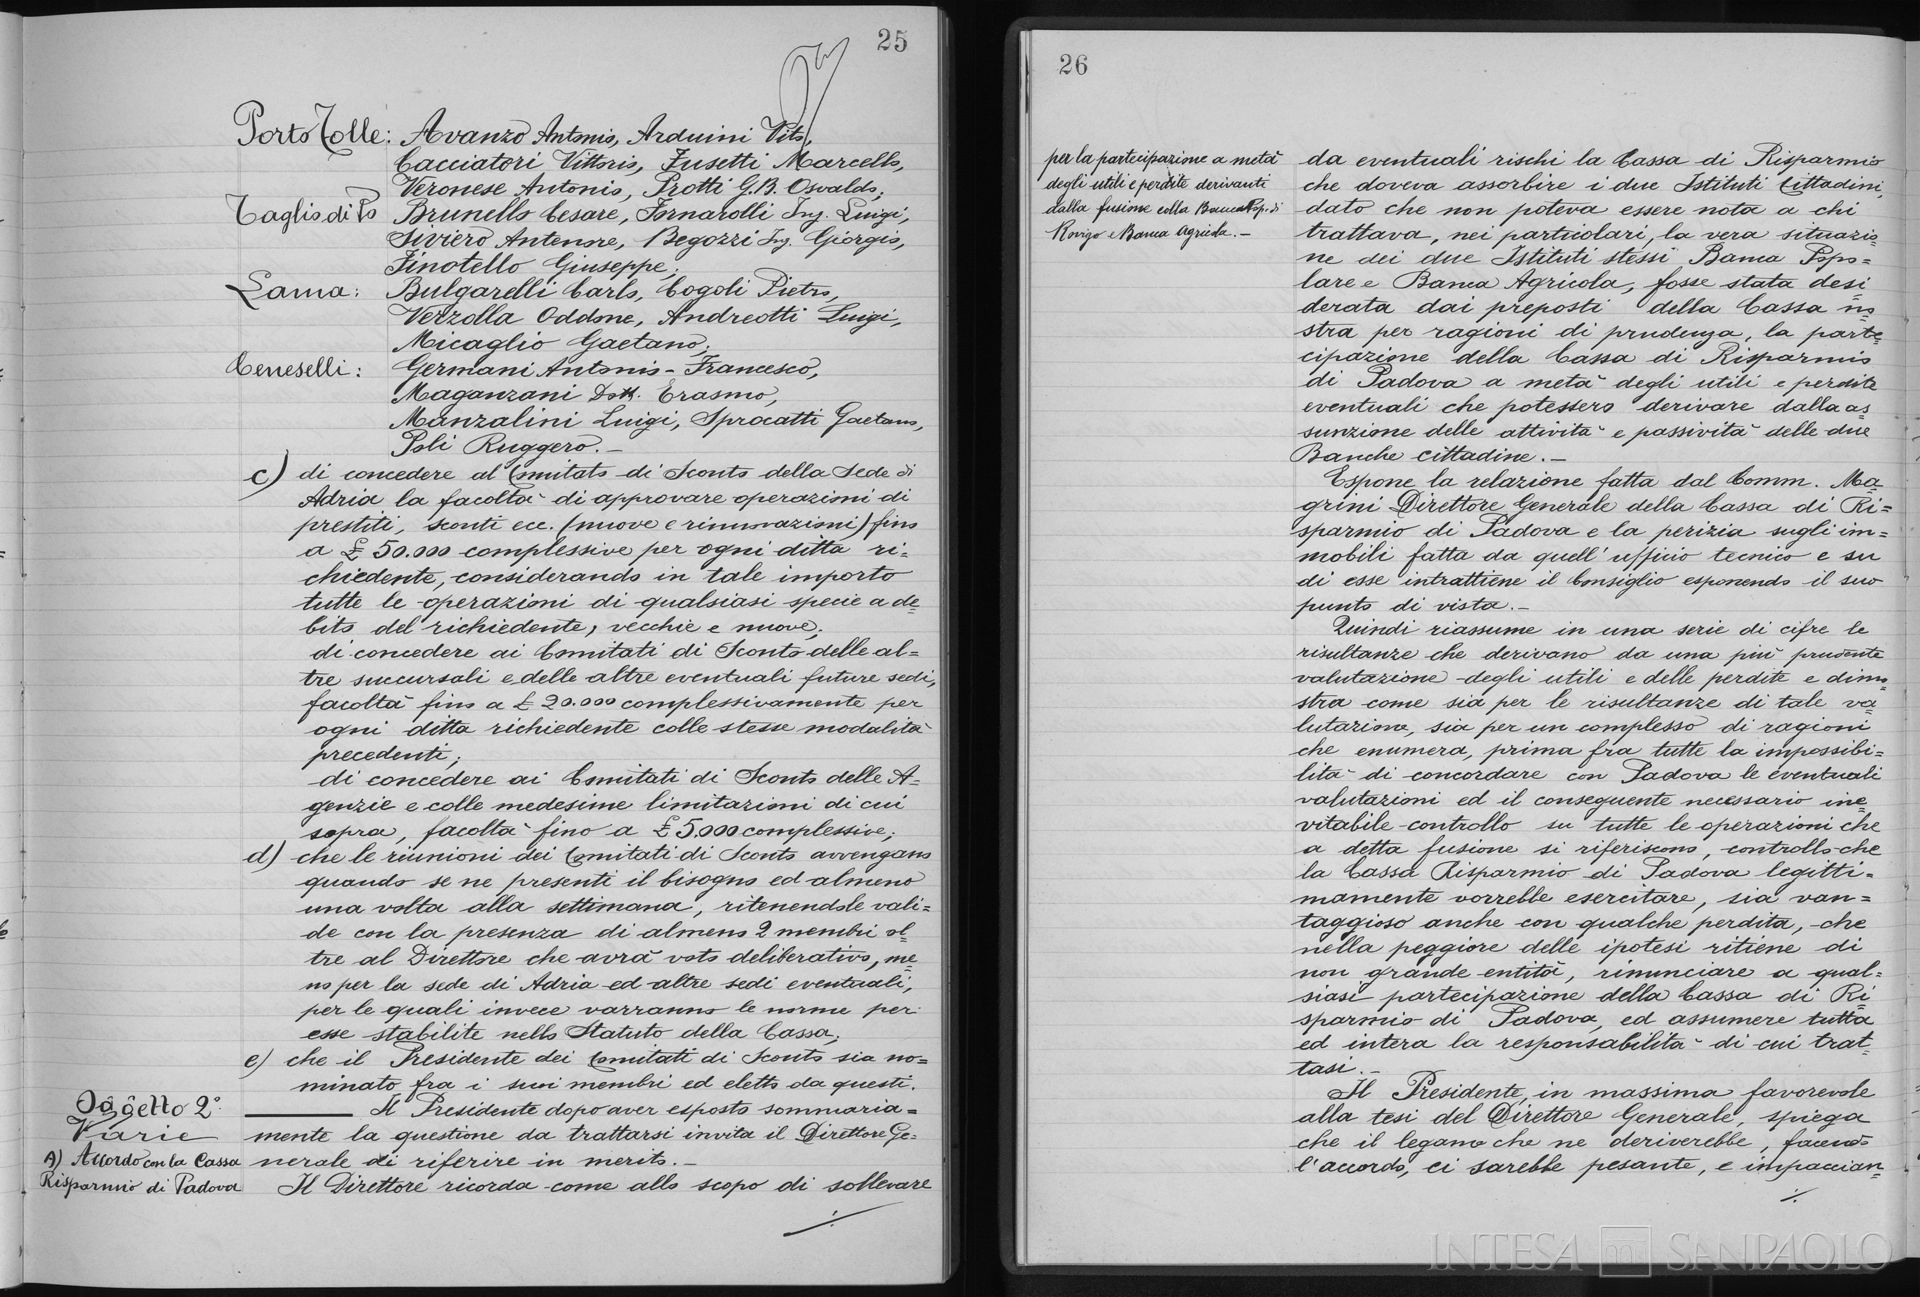 25
Porto Tolle: Avanzo Antonio, Arduini Vito,
Cacciatori Vittorio, Fusetti Marcello,
Veronese Antonio, Protti G.B. Osvaldo;
Taglio di Po Brunello Cesare, Fornarolli Ing. Luigi,
Siviero Antenore, Begozzi Ing. Giorgio,
Finotello Giuseppe;
Lama: Bulgarelli Carlo, Cogoli Pietro,
Verzolla Oddone, Andreotti Luigi,
Micaglio Gaetano;
Ceneselli: Germani Antonio-Francesco,
Maganzani Dott. Erasmo,
Manzalini Luigi, Sprocatti Gaetano,
Poli Ruggero.-
c) di concedere al Comitato di Sconto della Sede di
Adria la facoltà di approvare operazioni di
prestiti, sconti ecc. (nuove e rinnovazioni) fino
a £ 50.000 complessive per ogni ditta ri=
chiedente, considerando in tale importo
tutte le operazioni di qualsiasi specie a de=
bito del richiedente, vecchie e nuove;
di concedere ai Comitati di Sconto delle al=
tre succursali e delle altre eventuali future sedi,
facoltà fino a £ 20.000 complessivamente per
ogni ditta richiedente colle stesse modalità
precedenti;
di concedere ai Comitati di Sconto delle A=
genzie e colle medesime limitazioni di cui
sopra, facoltà fino a £ 5.000 complessive;
d) che le riunioni dei Comitati di Sconto avvengano
quando se ne presenti il bisogno ed almeno
una volta alla settimana, ritenendole vali=
de con la presenza di almeno 2 membri ol=
tre al Direttore che avrà voto deliberativo, me=
no per la sede di Adria ed altre sedi eventuali,
per le quali invece varranno le norme per
esse stabilite nello Statuto della Cassa;
e) che il Presidente dei Comitati di Sconto sia no=
minato fra i suoi membri ed eletto da questi.
Oggetto 2°. Il Presidente dopo aver esposto sommaria=
Varie mente la questione da trattarsi invita il Direttore Ge=
A) Accordo con la Cassa nerale di riferire in merito.-
Risparmio di Padova Il Direttore ricorda come allo scopo di sollevare
./.
26
per la partecipazione a metà
degli utili e perdite derivanti
dalla fusione colla Banca Pop. di
Rovigo e Banca Agricola.-
da eventuali rischi la Cassa di Risparmio
che doveva assorbire i due Istituti Cittadini,
dato che non poteva essere nota a chi
trattava, nei particolari, la vera situazio=
ne dei due Istituti stessi Banca Popo=
lare e Banca Agricola, fosse stata desi=
derata dai preposti della Cassa no=
stra per ragioni di prudenza, la parte=
cipazione della Cassa di Risparmio
di Padova a metà degli utili e perdite
eventuali che potessero derivare dalla as=
sunzione delle attività e passività delle due
Banche cittadine.-
Espone la relazione fatta dal Comm. Ma=
grini Direttore Generale della Cassa di Ri=
sparmio di Padova e la perizia sugli im=
mobili fatta da quell'ufficio tecnico e su
di esse intrattiene il Consiglio esponendo il suo
punto di vista.-
Quindi riassume in una serie di cifre le
risultanze che derivano da una più prudente
valutazione degli utili e delle perdite e dimo=
stra come sia per le risultanze di tale va=
lutazione, sia per un complesso di ragioni
che enumera, prima fra tutte la impossibi=
lità di concordare con Padova le eventuali
valutazioni ed il conseguente necessario ine=
vitabile controllo su tutte le operazioni che
a detta fusione si riferiscono, controllo che
la Cassa Risparmio di Padova legitti=
mamente vorrebbe esercitare, sia van=
taggioso anche con qualche perdita, che
nella peggiore delle ipotesi ritiene di
non grande entità, rinunciare a qual=
siasi partecipazione della Cassa di Ri=
sparmio di Padova, ed assumere tutta
ed intera la responsabilità di cui trat=
tasi.-
Il Presidente, in massima favorevole
alla tesi del Direttore Generale, spiega
che il legame che ne deriverebbe, facendo
l'accordo, ci sarebbe pesante, e impaccian=
./.
INTESA SANPAOLO